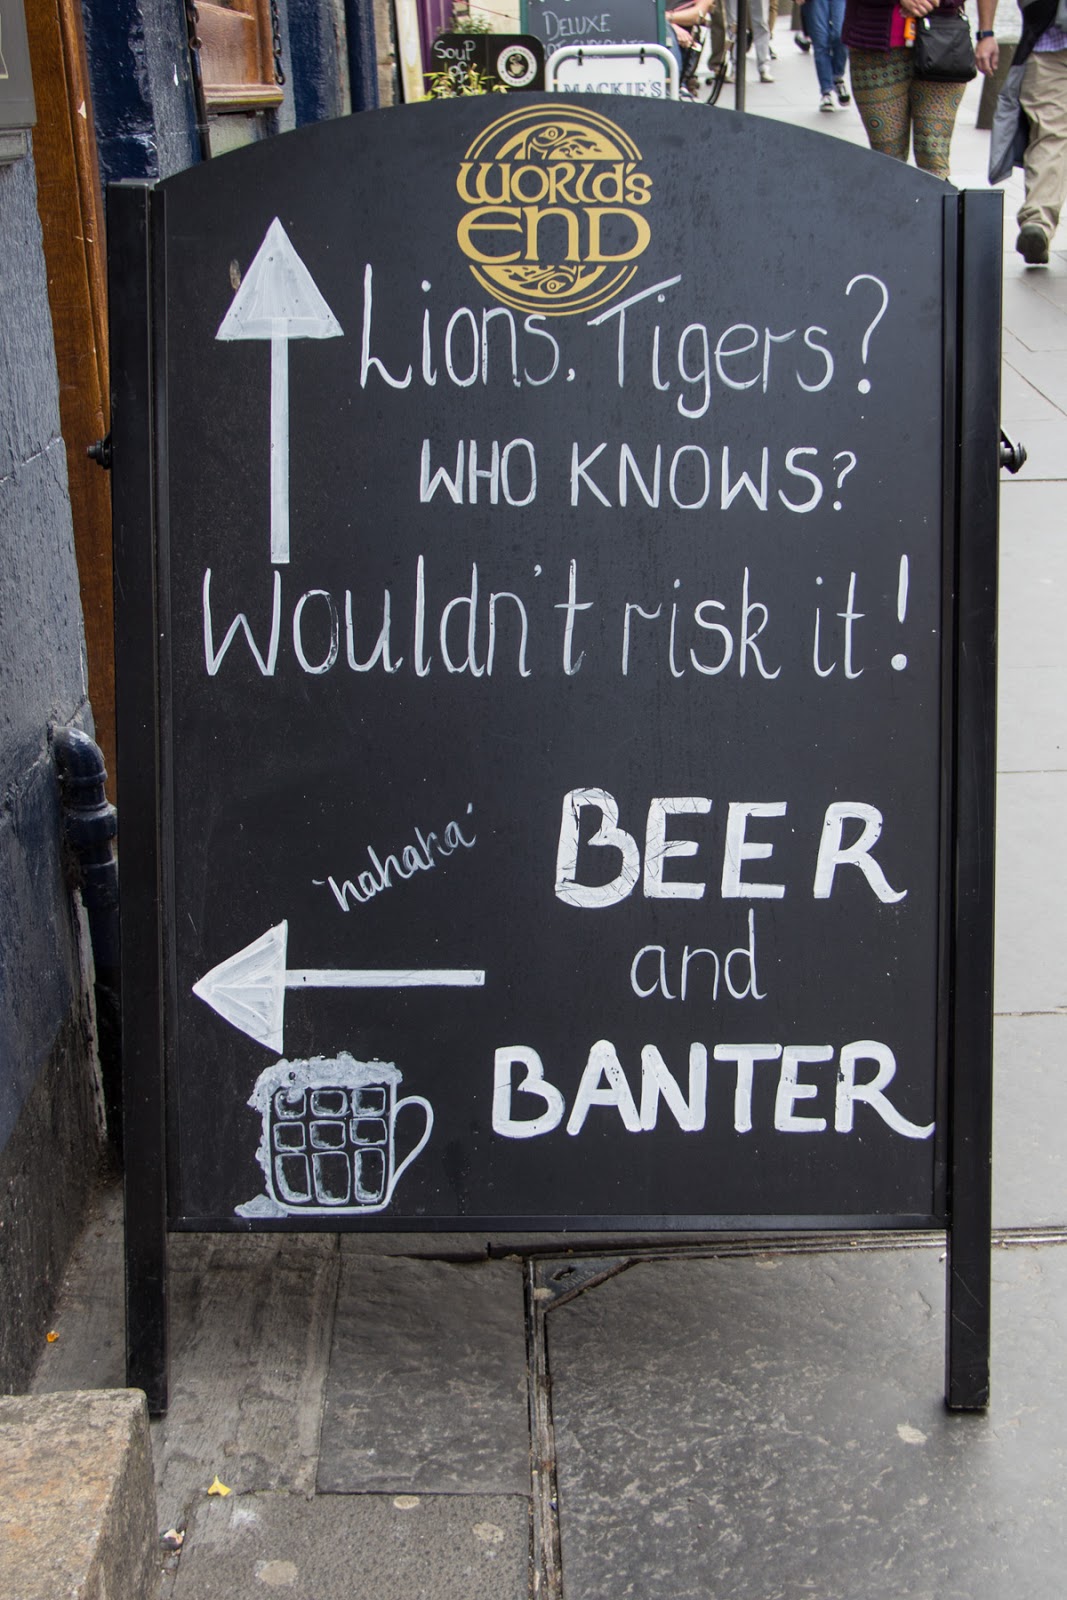 DELUXE
SOUP
OF
MACKIE'S
WORLD'S
END
Lions, Tigers?
WHO KNOWS?
Wouldn't risk it!
'hahaha'
BEER
and
BANTER